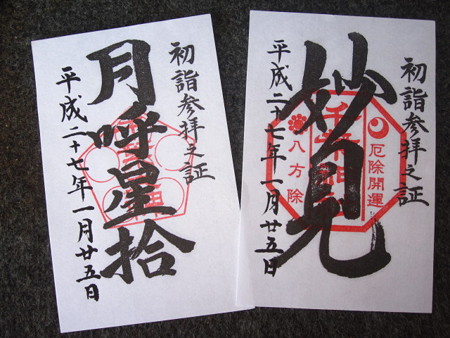 初詣参拝之証
月呼星拾
平成二十七年一月廿五日
初詣参拝之証
厄除開運
妙見
八方除
平成二十七年一月廿五日